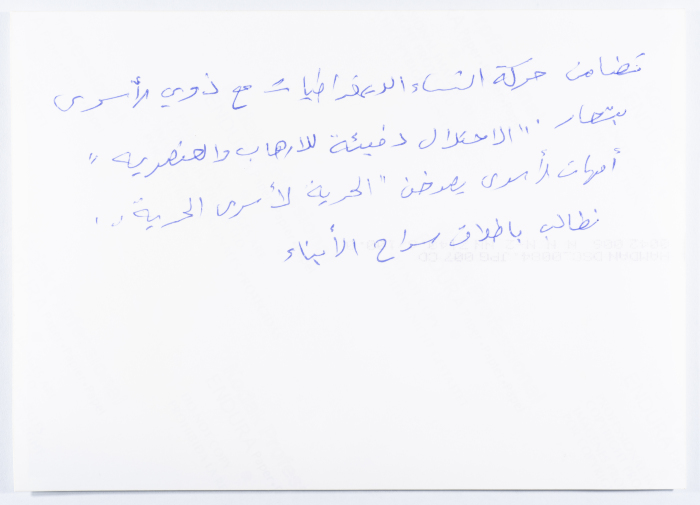 تضامن حركة النساء الديمقراطيات مع ذوي الأسرى
بشعار "الاحتلال دفيئة للارهاب والعنصرية"
أمهات الأسرى يصرخن "الحرية لأسرى الحرية"
نطالب باطلاق سراح الأبناء